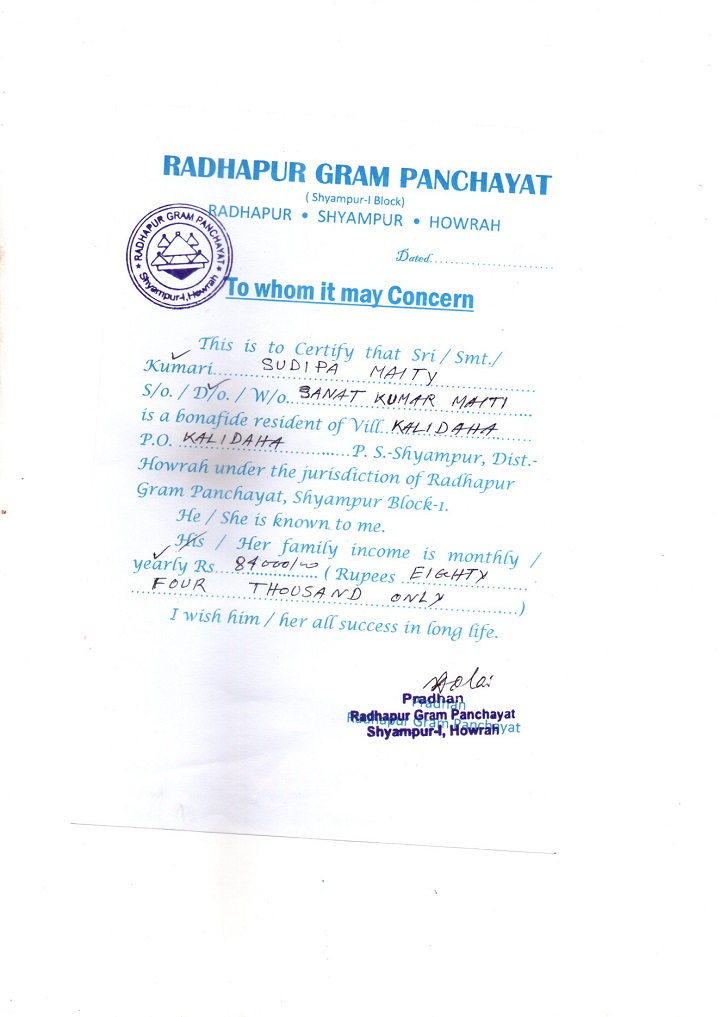 RADHAPUR GRAM PANCHAYAT
( Shyampur-I Block)
RADHAPUR • SHYAMPUR • HOWRAH
★ RADHAPUR GRAM PANCHAYAT ★
Shyampur-I, Howrah
Dated
To whom it may Concern
This is to Certify that Sri / Smt./
Kumari SUDIPA MAITY
S/o. / D/o. / W/o. SANAT KUMAR MAITI
is a bonafide resident of Vill. KALIDAHA
P.O. KALIDAHA P. S.-Shyampur, Dist.-
Howrah under the jurisdiction of Radhapur
Gram Panchayat, Shyampur Block-1.
He / She is known to me.
His / Her family income is monthly /
yearly Rs 84000/00 ( Rupees EIGHTY
FOUR THOUSAND ONLY )
I wish him / her all success in long life.
Pradhan
Radhapur Gram Panchayat
Shyampur-I, Howrah
Pradhan
Radhapur Gram Panchayat